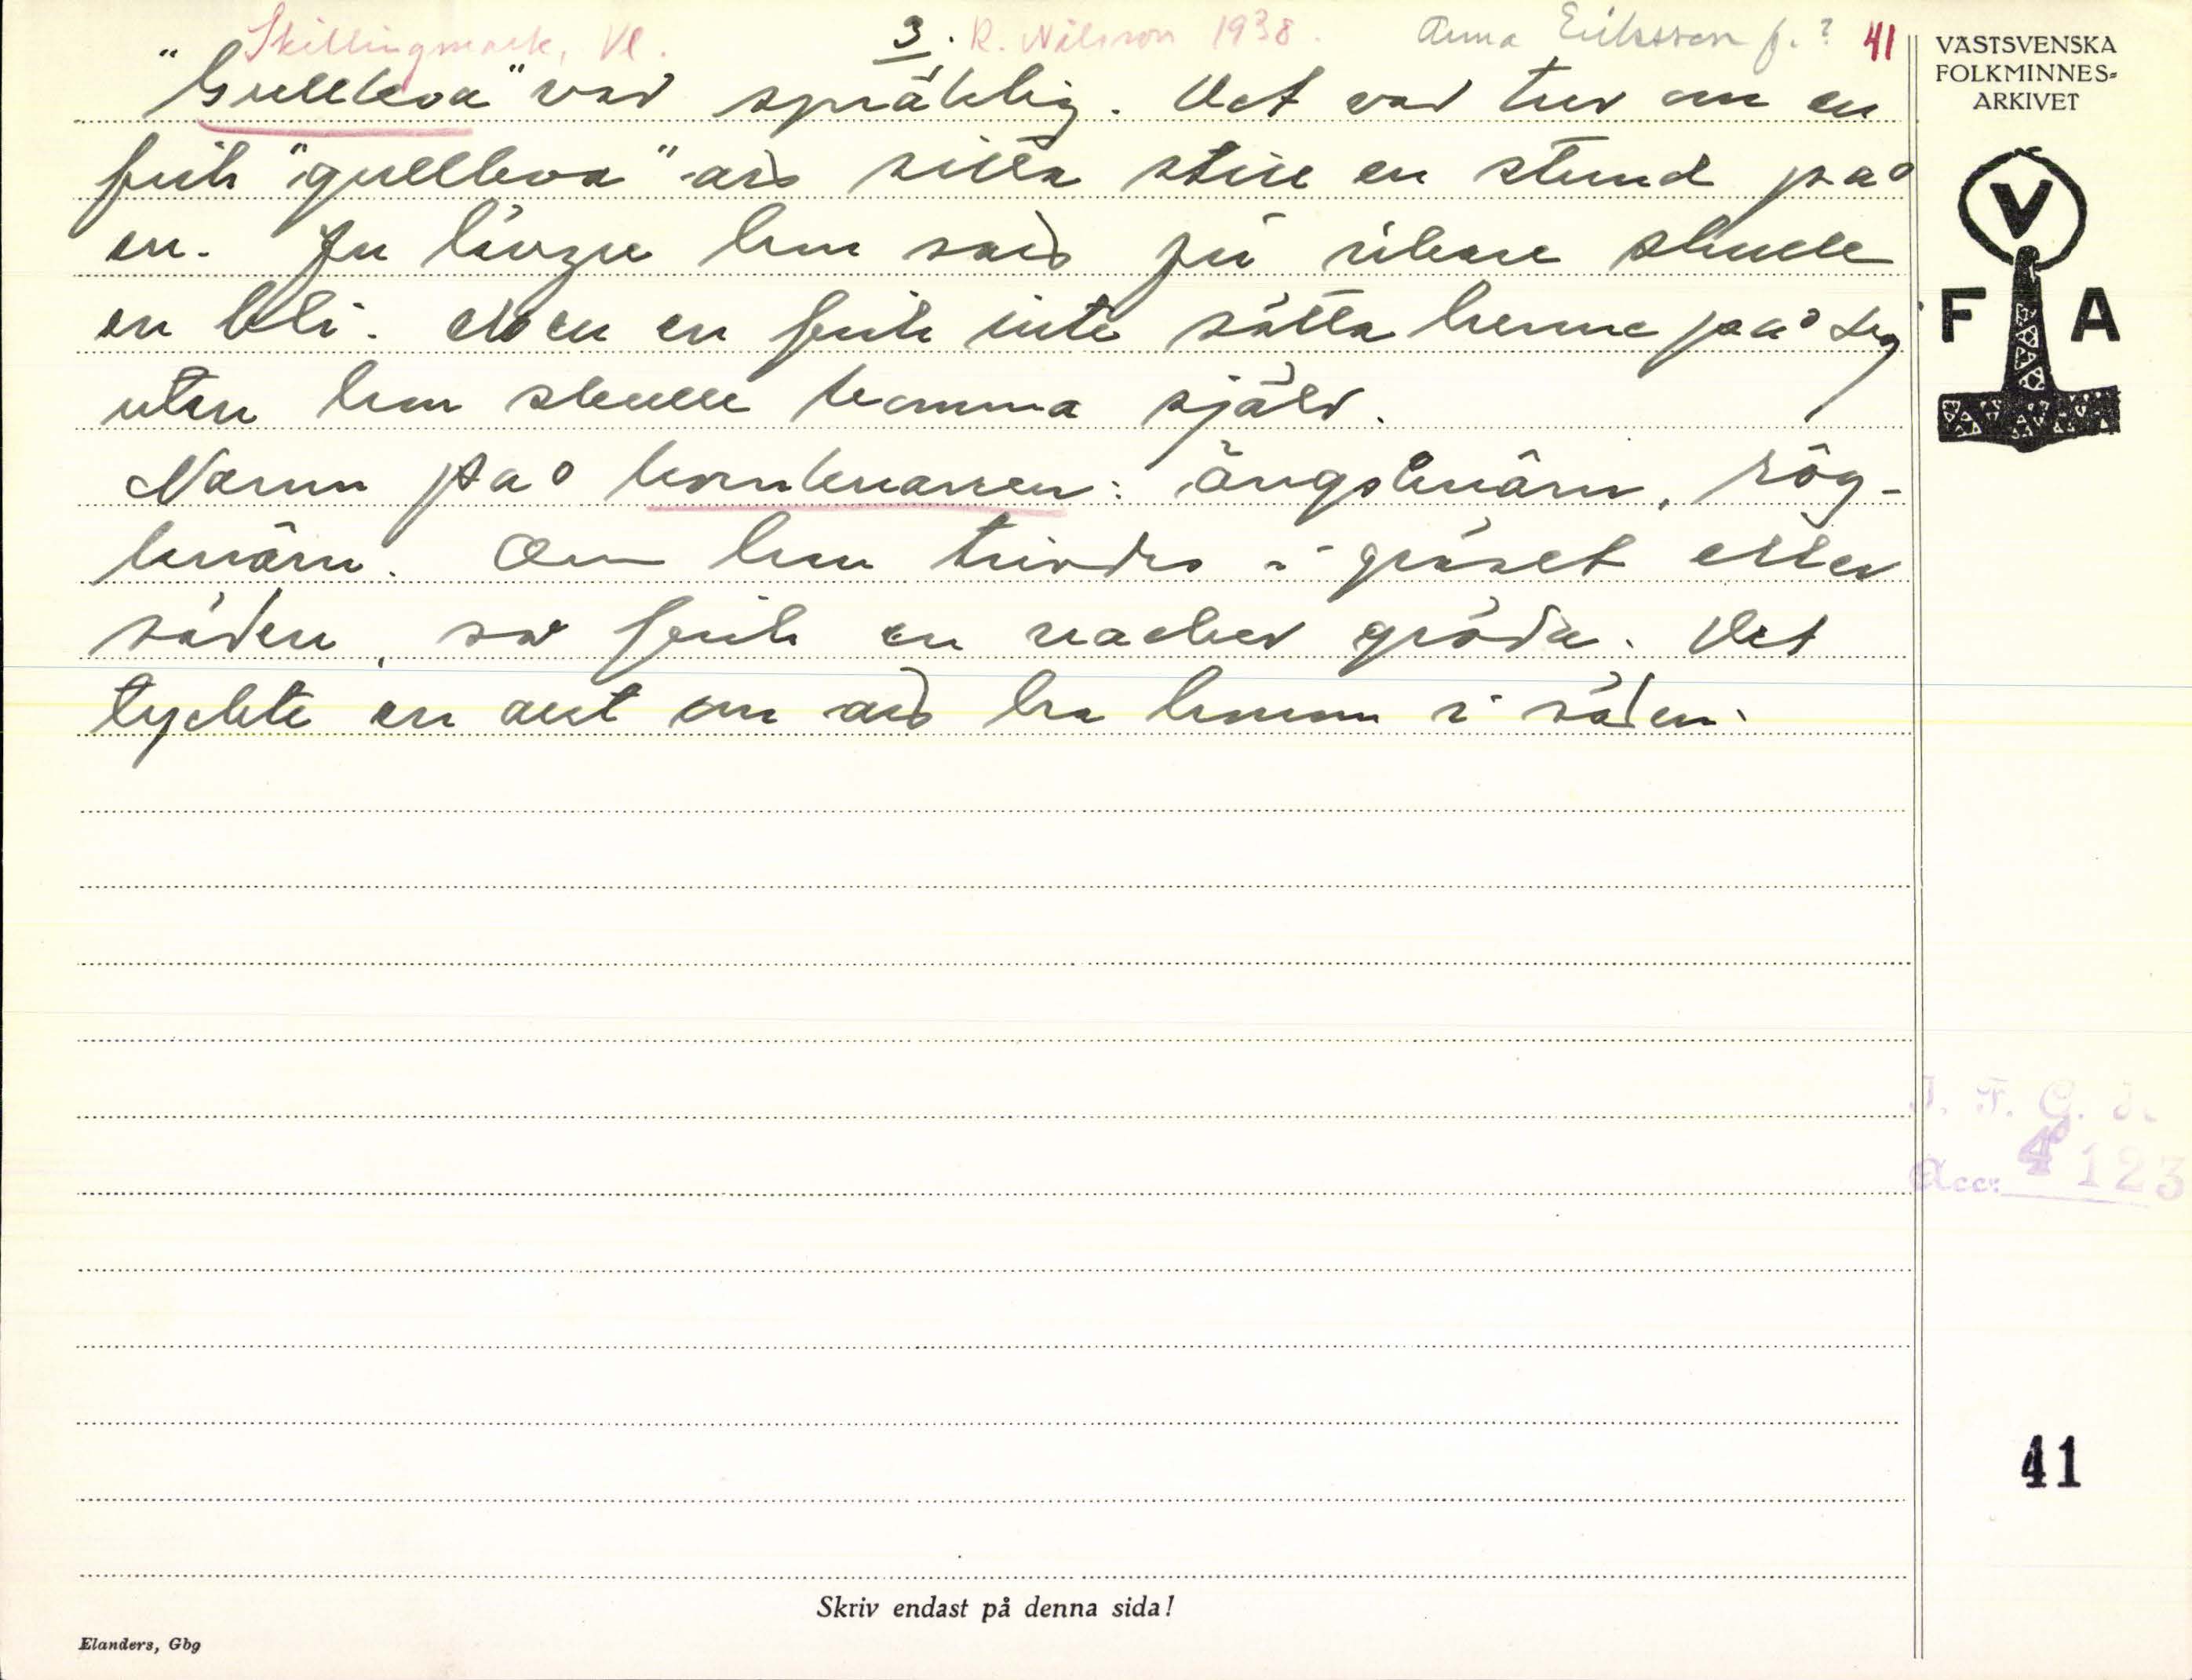 Skillingmark, Vl. 3. R. Nilsson 1938. Anna Eriksson f.? 41
"Gullkoa" var spräklig. Det var tur om en
fick "gullkoa" att sitta still en stund på
en. Ju längre hun satt ju rikare skulle
en bli. Men en fick inte sätta henne på sig
utan hun skulle komma själv.
Namn på kornknarren: ängsknärn, rög-
knärn. Om hun trivdes i gräset eller
säden, så fick en vacker gröda. Det
tyckte en allt om att ha henne i säden.
VÄSTSVENSKA
FOLKMINNES-
ARKIVET
V
F A
Acc: 4123
41
Skriv endast på denna sida!
Elanders, Gbg